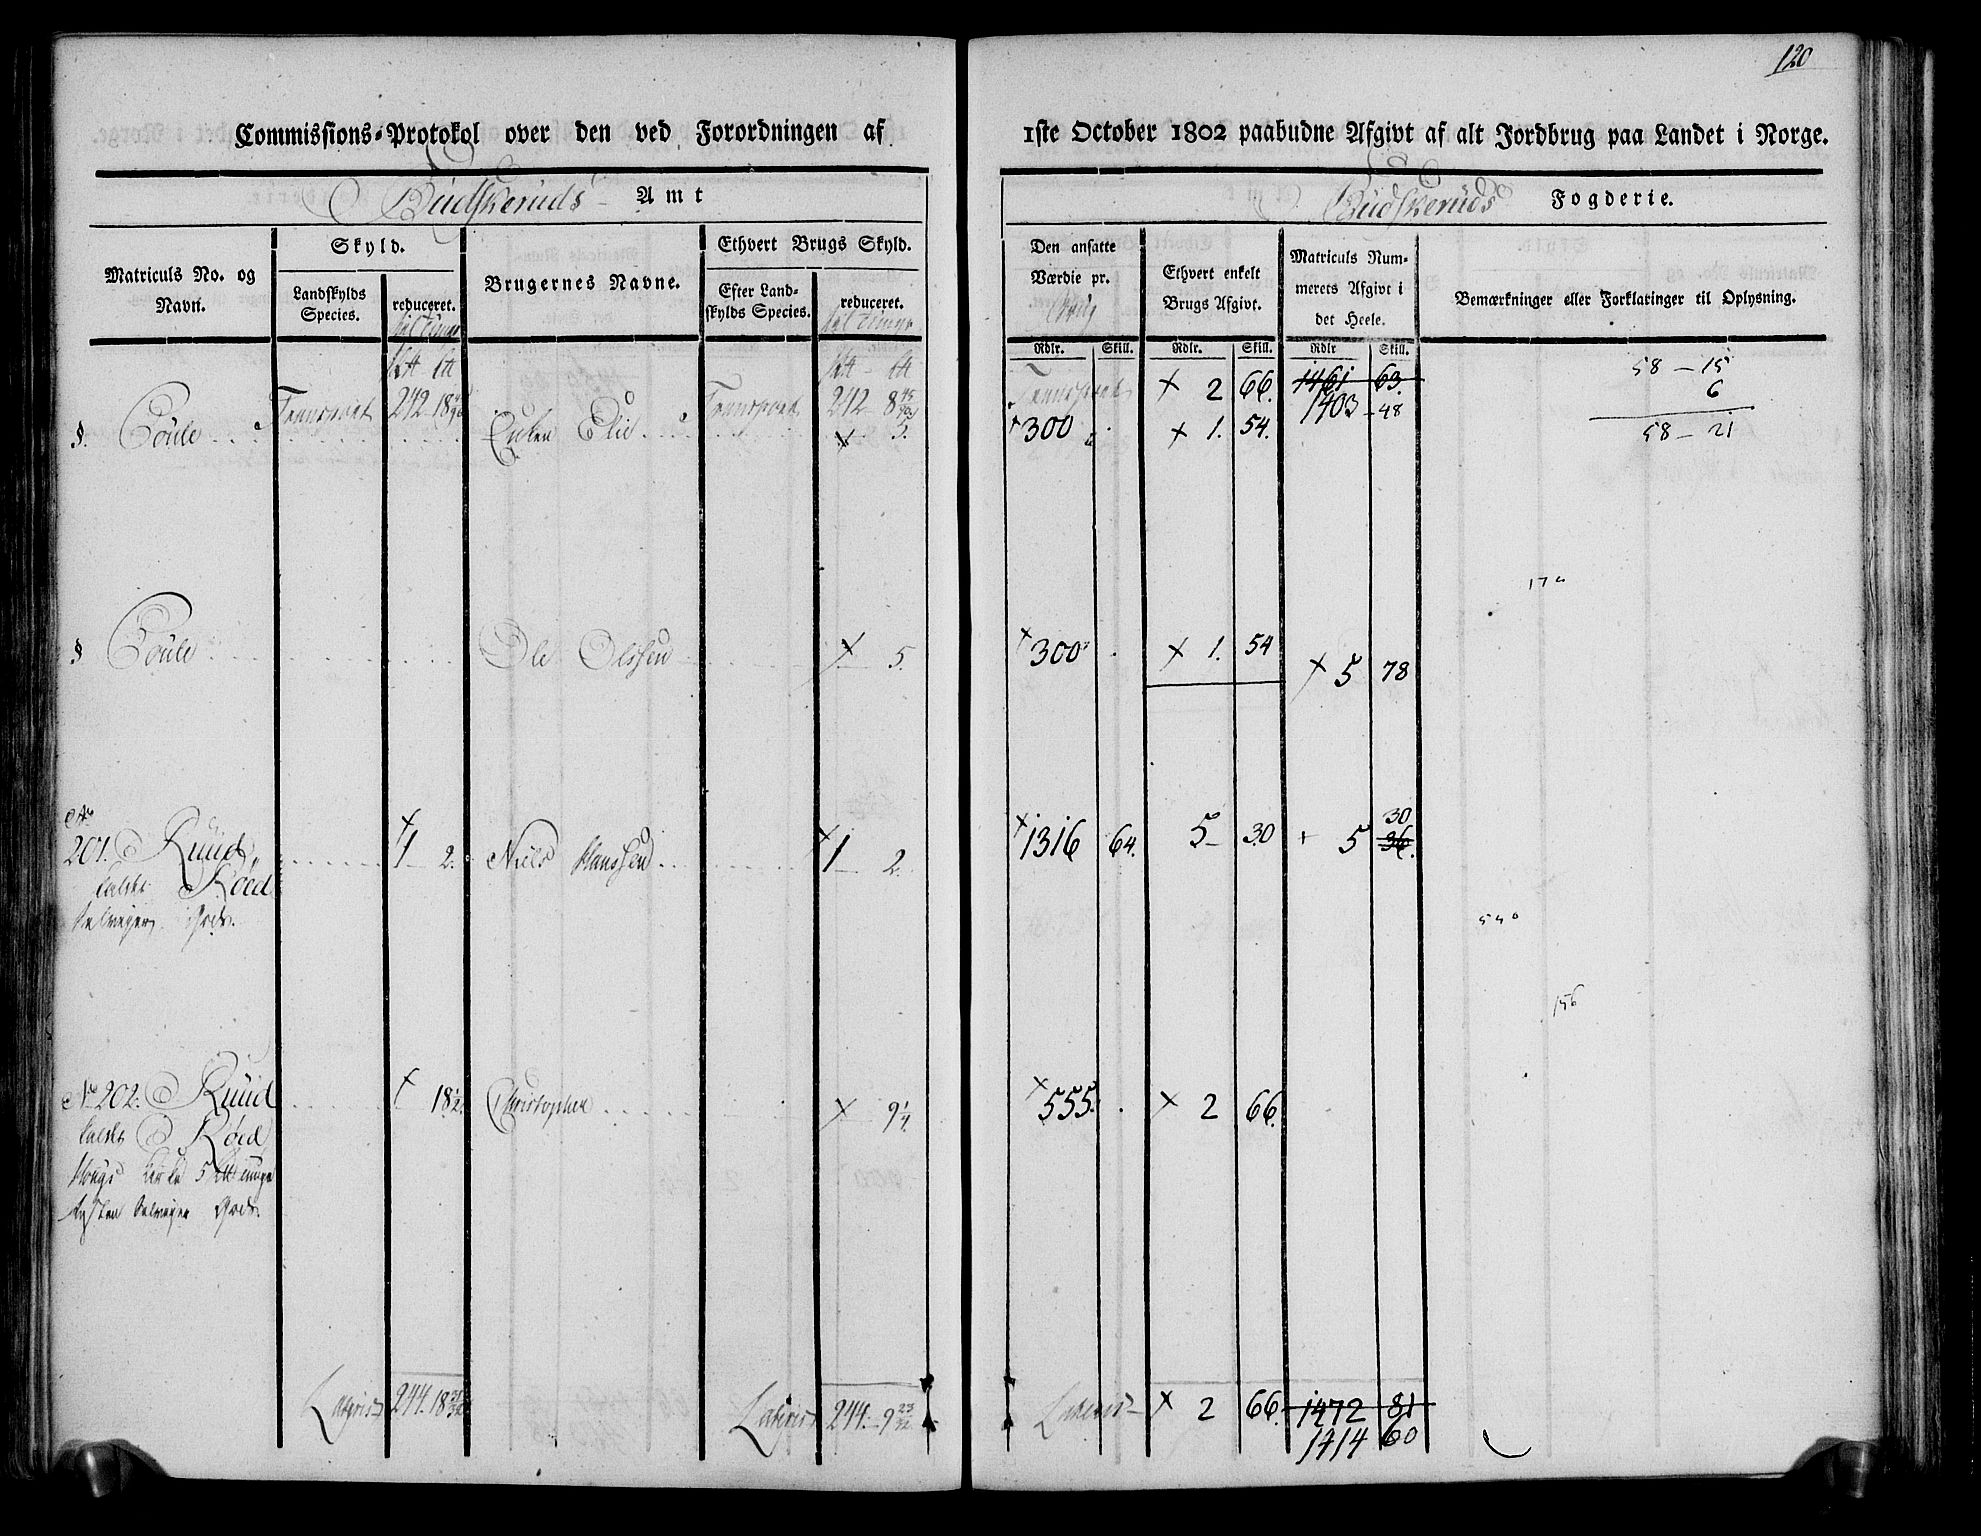 120
Commissions-Protokol over den ved Forordningen af
1ste October 1802 paabudne Afgivt af alt Jordbrug paa Landet i Norge.
Budskeruds Amt
Budskeruds Fogderie.
Matriculs No. og Navn.
Skyld.
Landskylds Species.
reduceret.
Brugernes Navne.
Ethvert Brugs Skyld.
Efter Landskylds Species.
reduceret.
Den ansatte Værdie pr.
Ethvert enkelt Brugs Afgivt.
Matriculs Nummerets Afgivt i det Heele.
Bemærkninger eller Forklaringer til Oplysning.
Rdlr. Skill. Rdlr. Skill. Rdlr Skill.
Transport 242 18 Transport 242 8 Transport × 2 66. 1461 63.
1403 - 48
58 - 15
6
58 - 21
§. Elie 5. 300 × 1. 54.
170
§ Ole Olssen × 5. 300 × 1. 54 × 5 78
No 201. Ruud, 1 2. Niels Hanssen 1 2. 1316 64. 5 30 + 5 36.
30
kaldet Røed
Selveyer Gods.
540
156
No 202. Ruud 18 1/2 Christopher × 9 1/4 555. × 2 66.
kaldet Røed
Selveyer Gods.
Lateris 244. 18 Lateris 244. 9 23/32 Lateris × 2 66. 1472 81
1414 60